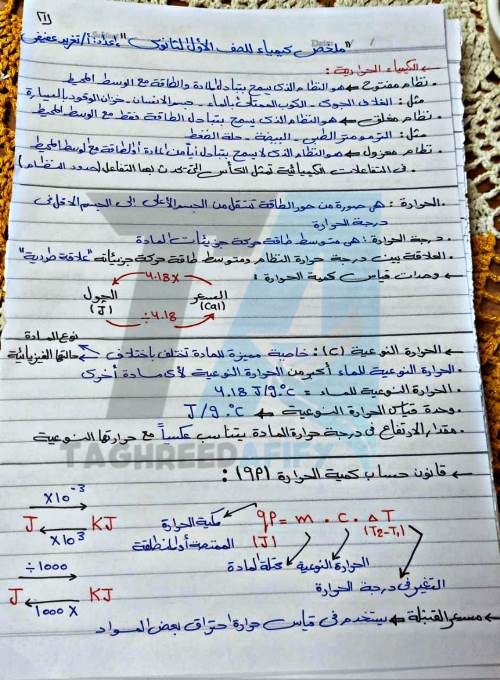 [1]
"ملخص كيمياء للصف الأول الثانوى" إعداد: أ/ تغريد عفيفى
الكيمياء الحرارية:
• نظام مفتوح ← هو النظام الذى يسمح بتبادل المادة والطاقة مع الوسط المحيط
مثل: الغلاف الجوى - الكوب الممتلئ بالماء - جسم الانسان - خزان الوقود بالسيارة
• نظام مغلق ← هو النظام الذى يسمح بتبادل الطاقة فقط مع الوسط المحيط
مثل: الترمومتر الطبى - البيضة - حلة الضغط
• نظام معزول ← هو النظام الذى لا يسمح بتبادل أياً من المادة أو الطاقة مع الوسط المحيط
• فى التفاعلات الكيميائية تمثل الكأس التى تحدث بها التفاعل (حدود النظام)
• الحرارة: هى صورة من صور الطاقة تنتقل من الجسم الأعلى إلى الجسم الاقل فى
درجة الحرارة
• درجة الحرارة: هى متوسط طاقة حركة جزيئات المادة
• العلاقة بين درجة حرارة النظام ومتوسط طاقة حركة جزيئاته "علاقة طردية"
← وحدات قياس كمية الحرارة:
4.18 x
السعر (Cal) الجول (J)
÷ 4.18
← الحرارة النوعية (C): خاصية مميزة للمادة تختلف باختلاف نوع المادة
حالتها الفيزيائية
• الحرارة النوعية للماء أكبر من الحرارة النوعية لأى مادة أخرى
• الحرارة النوعية للماء = 4.18 J/g.°C
• وحدة قياس الحرارة النوعية ← J/g.°C
• مقدار الارتفاع فى درجة حرارة المادة يتناسب عكسياً مع حرارتها النوعية
TAGHREED AFIFY
← قانون حساب كمية الحرارة (qp):
x10⁻³
J KJ
x10³
qp = m . C . ΔT
(J) (T2-T1)
كمية الحرارة
الممتصة أو المنطلقة
كتلة المادة
الحرارة النوعية
التغير فى درجة الحرارة
÷1000
J KJ
1000 x
← مسعر القنبلة ← يستخدم فى قياس حرارة احتراق بعض المواد